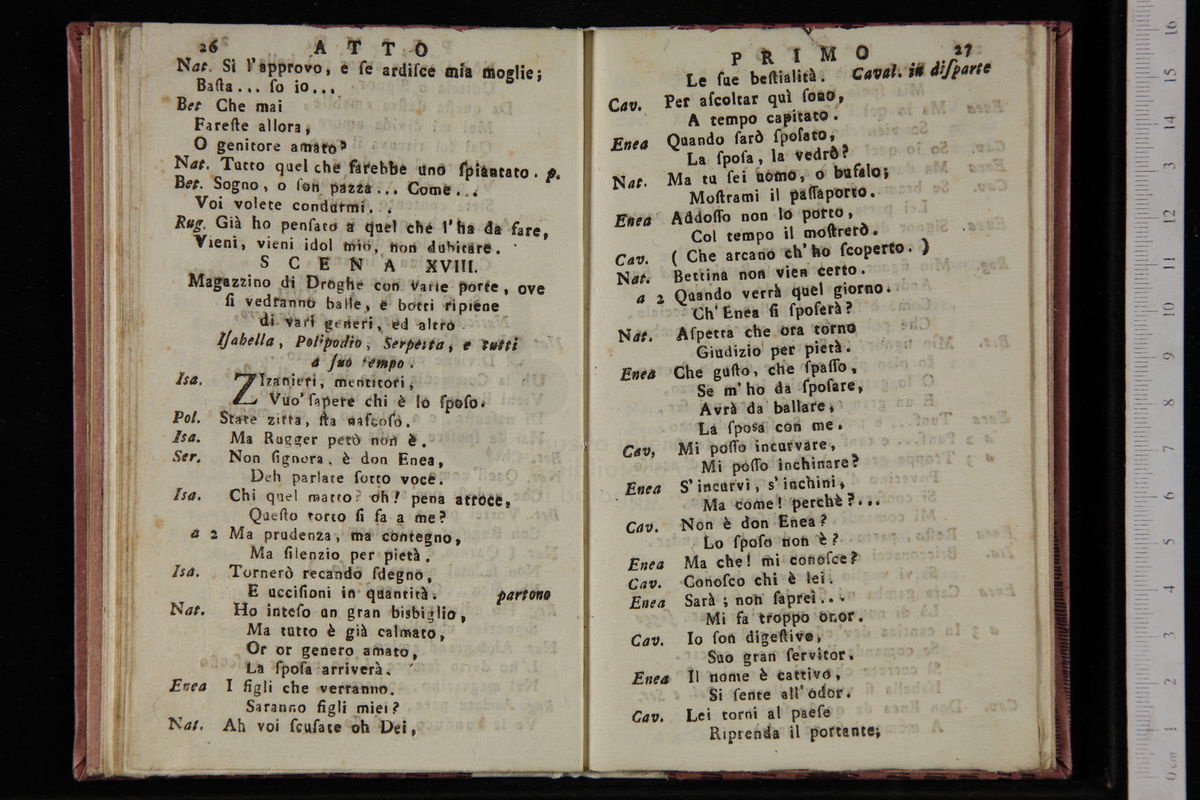 26 ATTO
Nat. Sì l'approvo, e se ardiſce mia moglie;
Baſta... ſo io...
Bet Che mai
Fareſte allora,
O genitore amato?
Nat. Tutto quel che farebbe uno ſpiantato. p.
Bet. Sogno, o ſon pazza... Come...
Voi volete condurmi...
Rug. Già ho penſato a quel che l'ha da fare,
Vieni, vieni idol mio, non dubitare.
SCENA XVIII.
Magazzino di Droghe con varie porte, ove
ſi vedranno balle, e botti ripiene
di vari generi, ed altro
Iſabella, Polipodio, Serpetta, e tutti
a ſuo tempo.
Isa. ZIzanieri, mentitori,
Vuo' ſapere chi è lo ſpoſo.
Pol. State zitta, ſta naſcoſo.
Isa. Ma Rugger però non è.
Ser. Non ſignora, è don Enea,
Deh parlate ſotto voce.
Isa. Chi quel matto? oh! pena atroce,
Queſto torto ſi fa a me?
a 2 Ma prudenza, ma contegno,
Ma ſilenzio per pietà.
Isa. Tornerò recando ſdegno,
E ucciſioni in quantità. partono
Nat. Ho inteſo un gran bisbiglio,
Ma tutto è già calmato,
Or or genero amato,
La ſpoſa arriverà.
Enea I figli che verranno.
Saranno figli miei?
Nat. Ah voi ſcuſate oh Dei,
PRIMO 27
Le ſue beſtialità. Caval. in diſparte
Cav. Per aſcoltar quì ſono,
A tempo capitato.
Enea Quando ſarò ſpoſato,
La ſpoſa, la vedrò?
Nat. Ma tu ſei uomo, o bufalo;
Moſtrami il paſſaporto.
Enea Addoſſo non lo porto,
Col tempo il moſtrerò.
Cav. ( Che arcano ch' ho ſcoperto. )
Nat. Bettina non vien certo.
a 2 Quando verrà quel giorno.
Ch' Enea ſi ſpoſerà?
Nat. Aſpetta che ora torno
Giudizio per pietà.
Enea Che guſto, che ſpaſſo,
Se m' ho da ſpoſare,
Avrà da ballare,
La ſposa con me.
Cav, Mi poſſo incurvare,
Mi poſſo inchinare?
Enea S' incurvi, s' inchini,
Ma come! perchè?...
Cav. Non è don Enea?
Lo ſpoſo non è?
Enea Ma che! mi conoſce?
Cav. Conoſco chi è lei.
Enea Sarà; non ſaprei...
Mi fa troppo onor.
Cav. Io ſon digeſtivo,
Suo gran ſervitor.
Enea Il nome è cattivo,
Si ſente all' odor.
Cav. Lei torni al paeſe
Riprenda il portante;